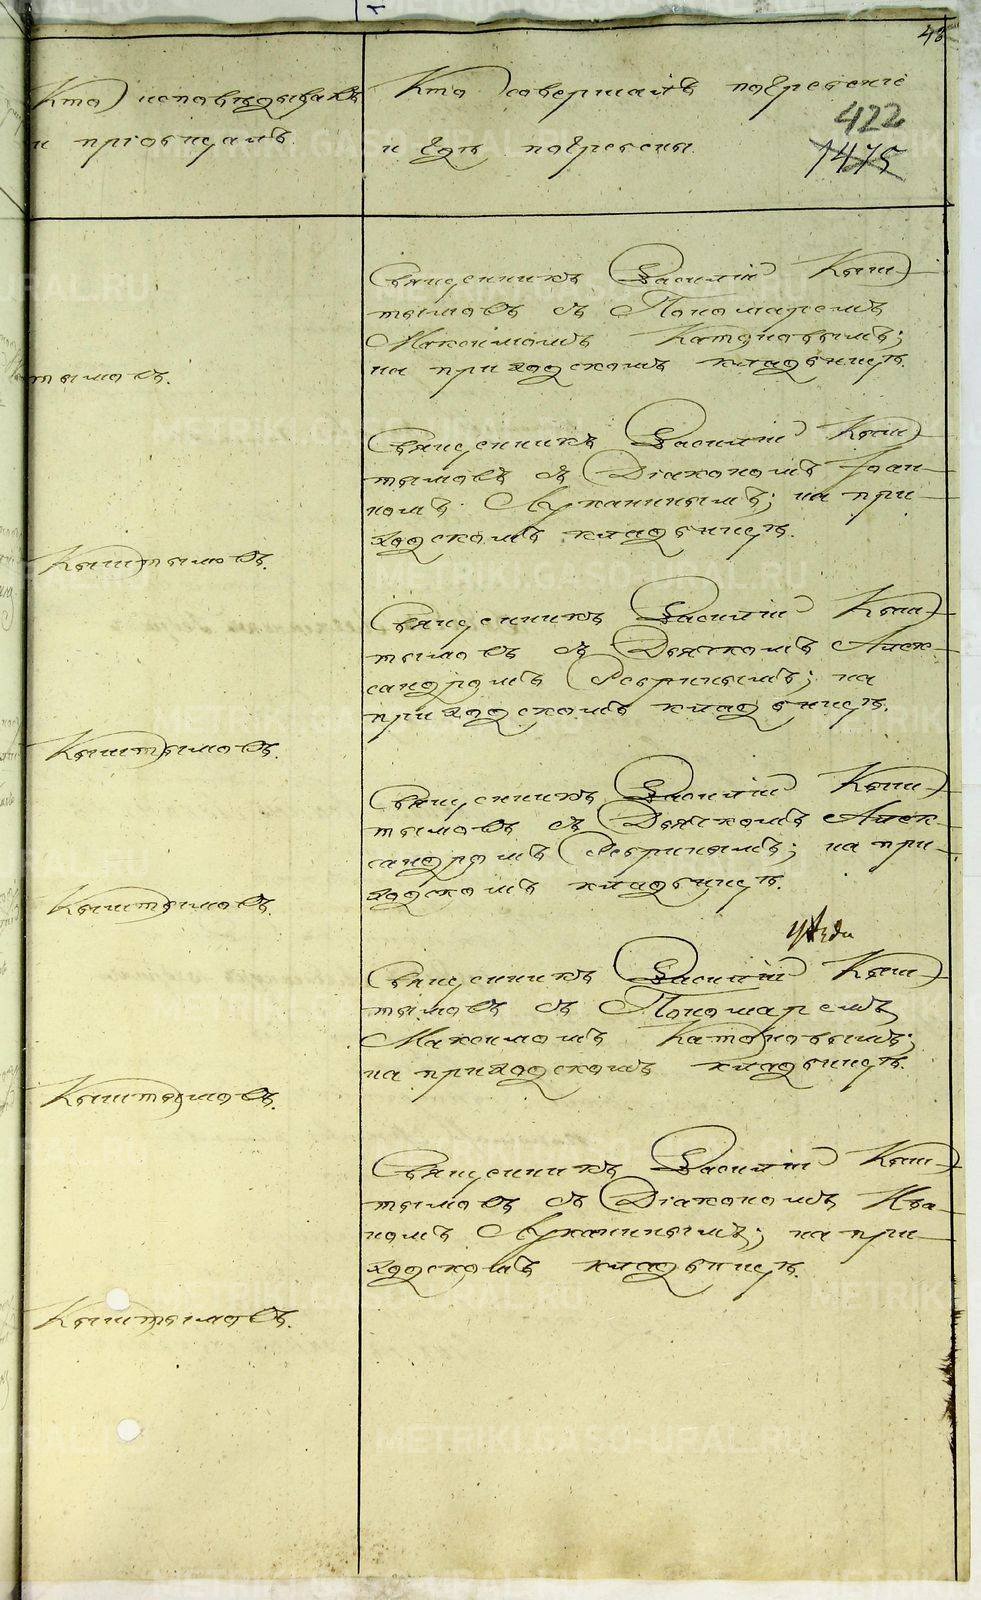 48
Кто исповѣдывалъ
и пріобщалъ.
Кто совершалъ погребеніе
и гдѣ погребены.
422
1475
Священникъ Василій Кыш-
тымовъ съ Пономаремъ
Максимомъ
на приходскомъ кладбищѣ.
тымовъ.
Священникъ Василій Кыш-
тымовъ съ Діакономъ Іоан-
номъ Луканинымъ; на при-
ходскомъ кладбищѣ.
Кыштымовъ.
Священникъ Василій Кыш-
тымовъ съ Дьячкомъ Алек-
сандромъ Ребринымъ; на
приходскомъ кладбищѣ.
Кыштымовъ.
Священникъ Василій Кыш-
тымовъ съ Дьячкомъ Алек-
сандромъ Ребринымъ; на при-
ходскомъ кладбищѣ.
Кыштымовъ.
Священникъ Василій Кыш-
тымовъ съ Пономаремъ
Максимомъ
на приходскомъ кладбищѣ.
Кыштымовъ.
Священникъ Василій Кыш-
тымовъ съ Діакономъ Ива-
номъ Луканинымъ; на при-
ходскомъ кладбищѣ.
Кыштымовъ.
METRIKI.GASO-URAL.RU